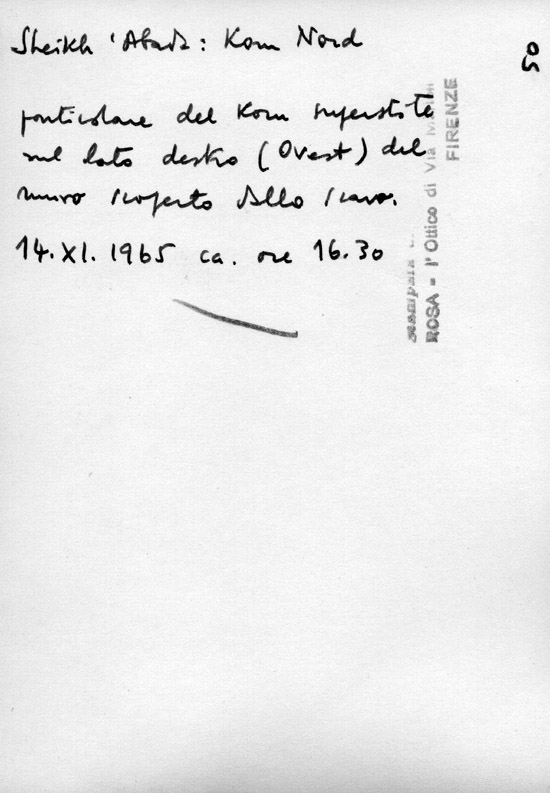 Sheikh 'Abada: Kom Nord
particolare del Kom superstite
sul lato destro (Ovest) del
muro scoperto dallo scavo.
14.XI.1965 ca. ore 16.30
05
stampata
ROSA - l'Ottico di Via
FIRENZE